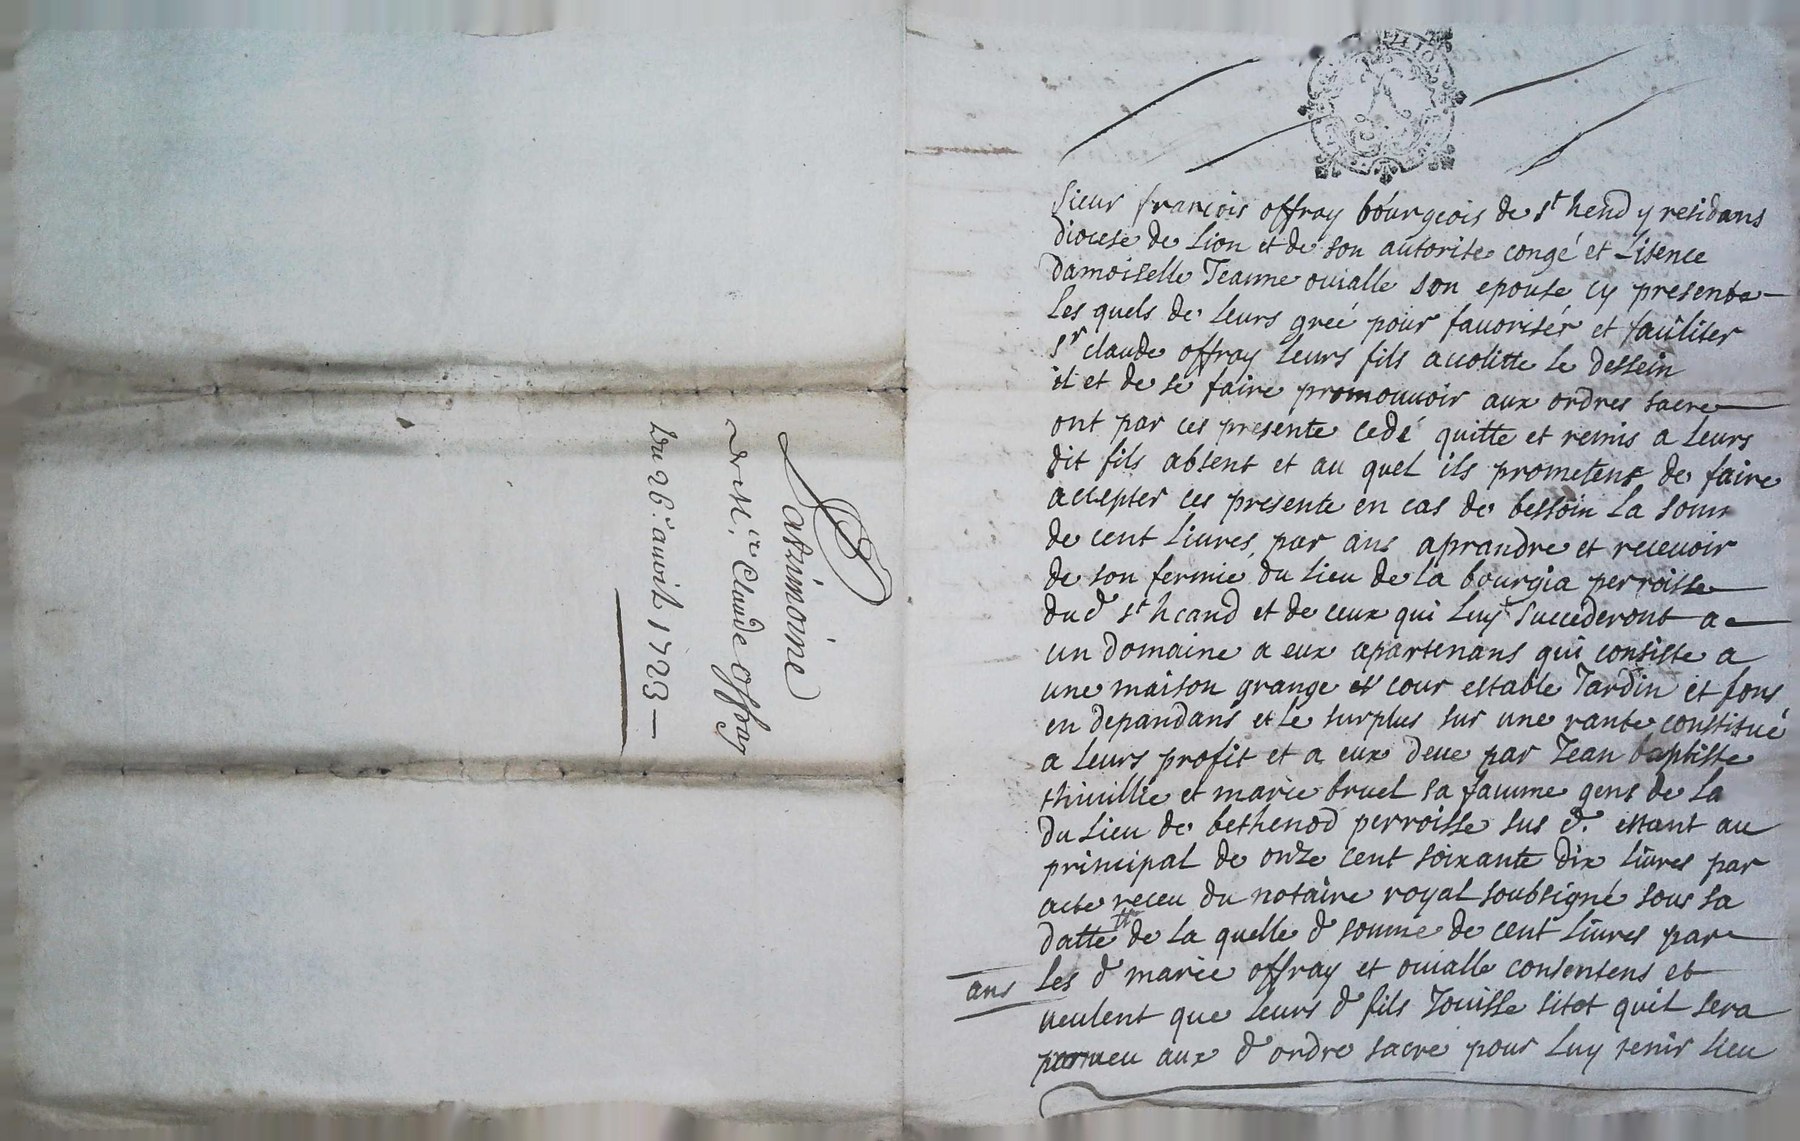 Patrimoine
de Mre Claude Offray
Du 26e auvril 1723
Sieur françois offray bourgeois de st hend y residans
diocese de Lion et de son autorite congé et Lisence
damoiselle Jeanne ouialle son epouse cy presente
Les quels de Leurs greé pour fauorisér et faciliter
sr claude offray Leurs fils accolitte Le dessein
il et de se faire promouuoir aux ordres sacre
ont par ces presente cedé quitte et remis a Leurs
dit fils absent et au quel ils prometens de faire
accepter ces presente en cas de bessoin La som
de cent Liures par ans aprandre et receuoir
de son fermie du Lieu de La bourgia perroisse
du d st heand et de ceux qui Luy succederont a
un domaine a eux apartenans qui consiste a
une maison grange et cour estable Jardin et fons
en depandans et Le surplus sur une rante constitué
a Leurs profit et a eux deue par Jean baptiste
thiuillie et marie bruel sa faume gens de La
du Lieu de bethenod perroisse sus d. estant au
principal de onze cent soixante dix Liures par
acte receu du notaire royal soubsigné sous sa
datte de La quelle d somme de cent Liures par
ans
Les d marie offray et ouialle consentens et
ueulent que Leurs d fils Jouisse sitot quil sera
aux d ordre sacre pour Luy tenir Lieu